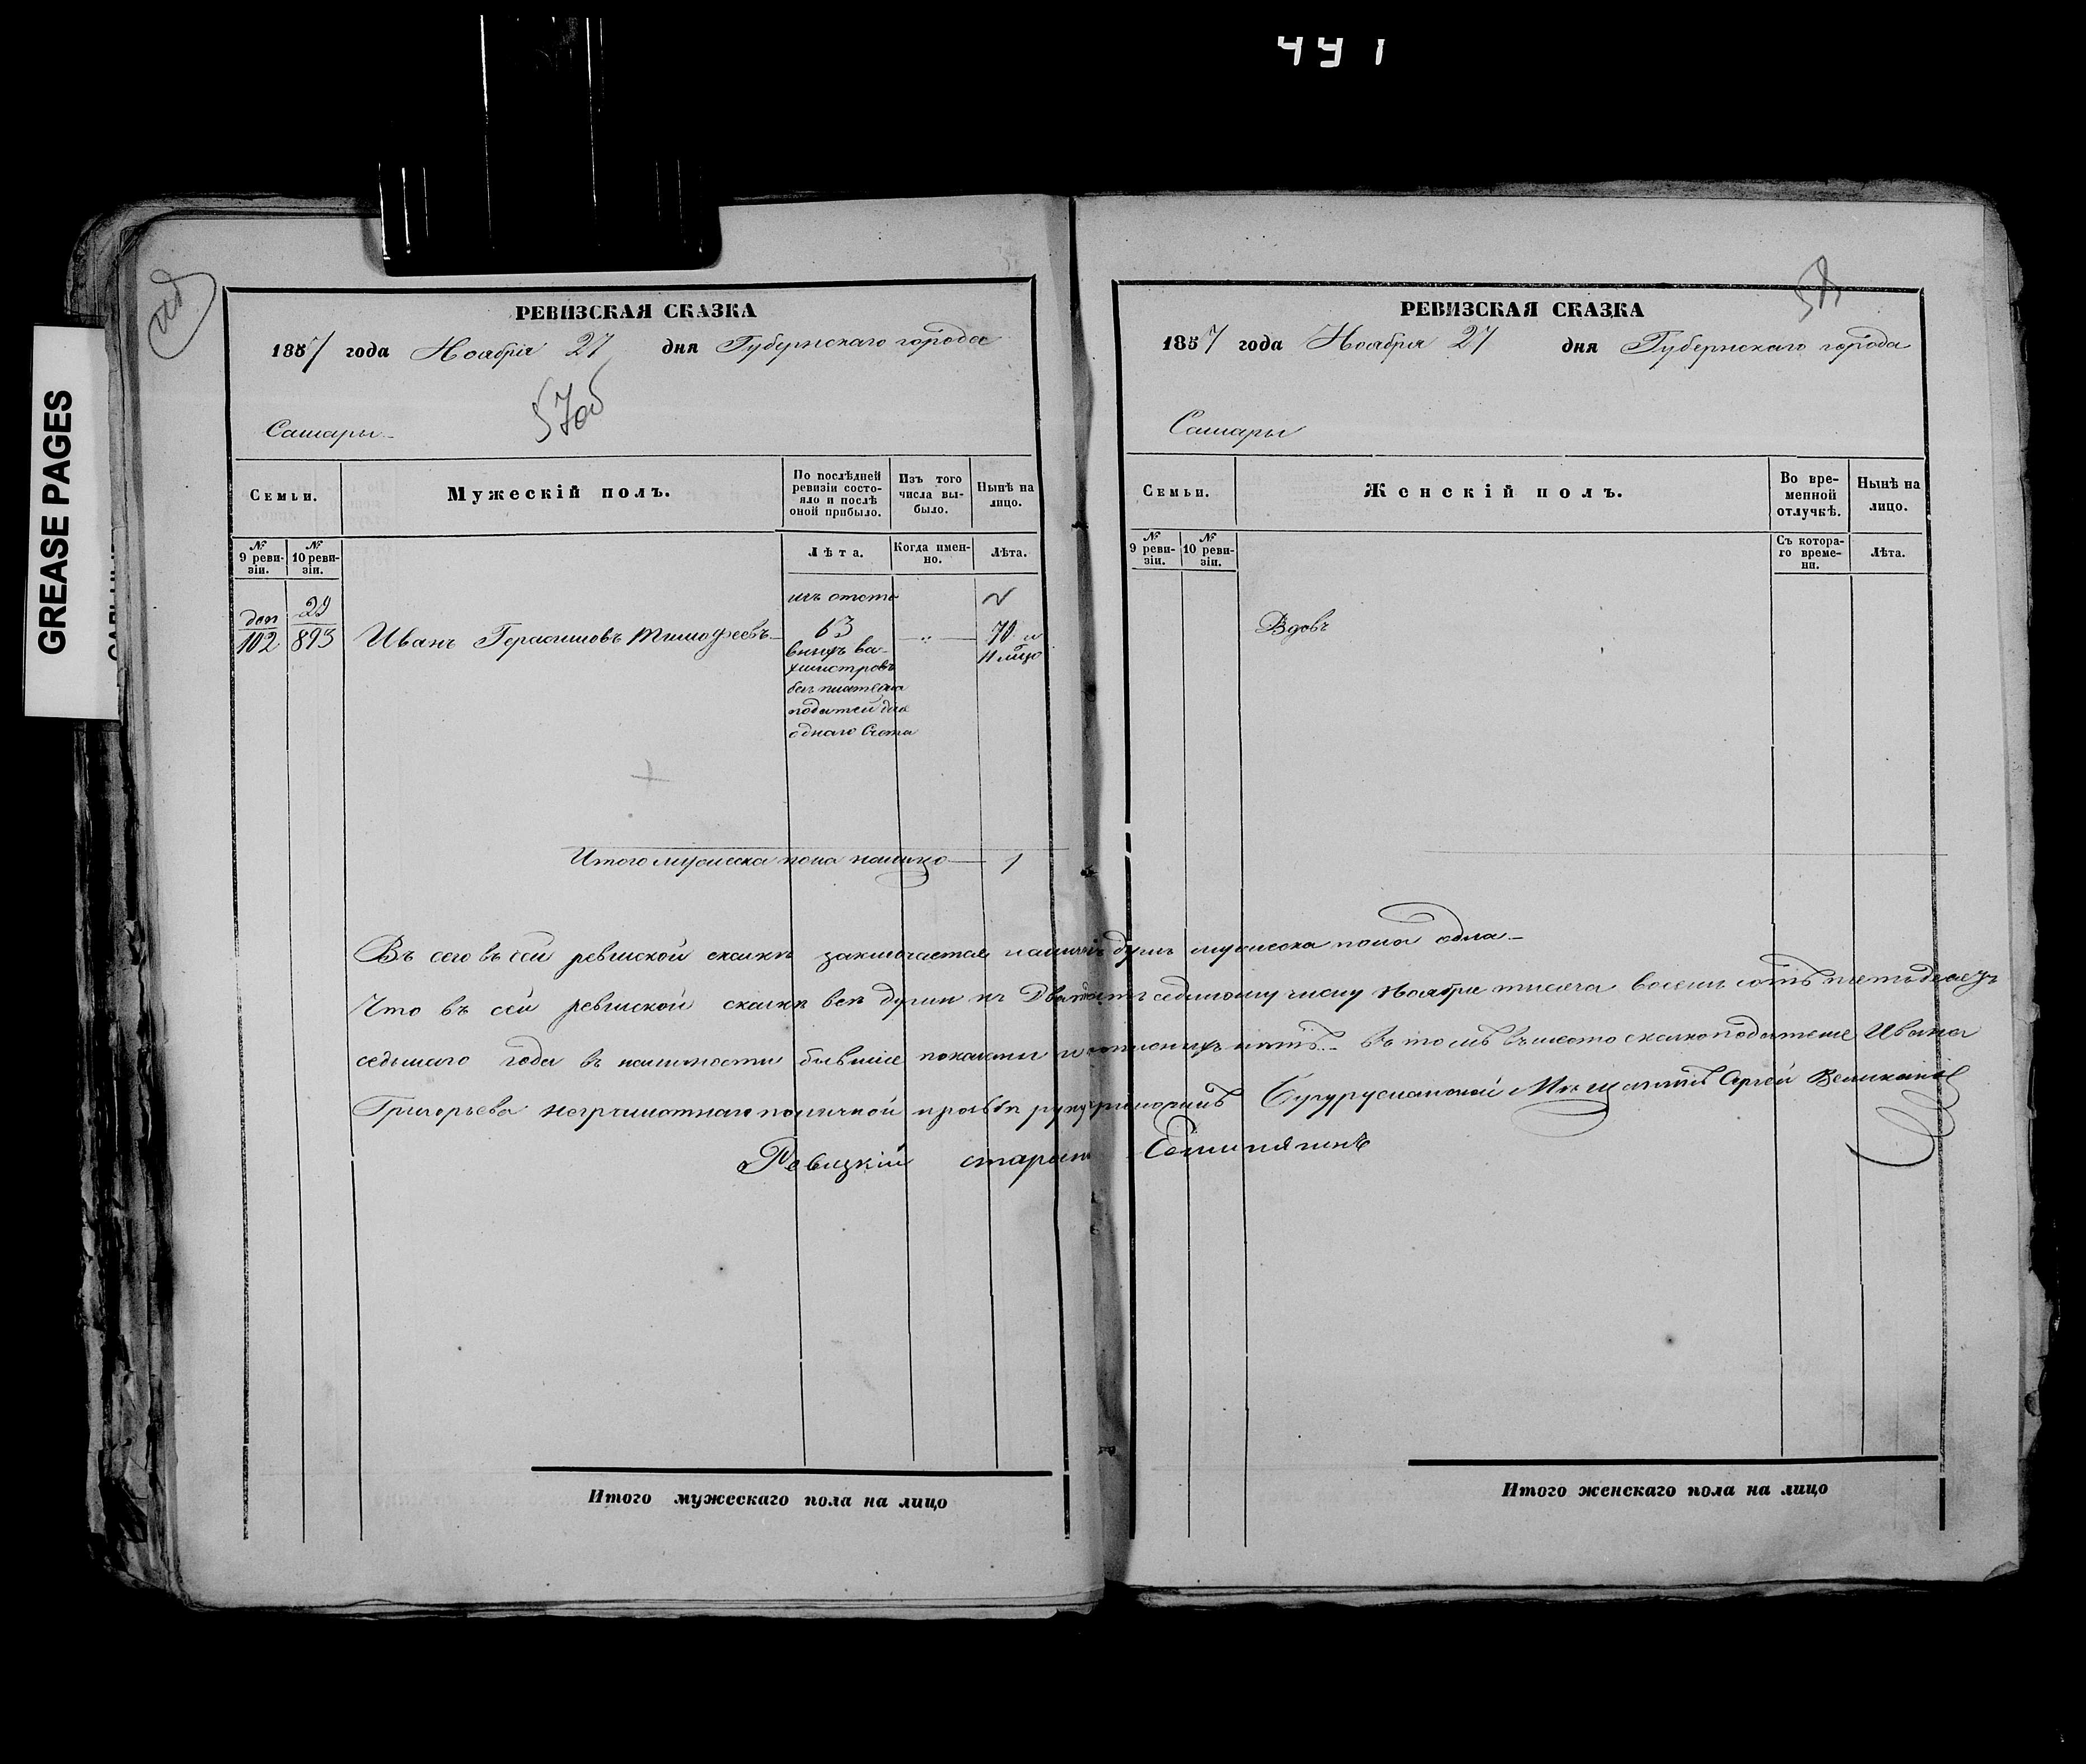 441
GREASE PAGES
57об
РЕВИЗСКАЯ СКАЗКА
1857 года Ноября 27 дня Губернскаго города
Самары
Семьи.
Мужескій полъ.
По послѣдней ревизіи состояло и послѣ оной прибыло.
Изъ того числа выбыло.
Нынѣ на лицо.
№ 9 ревизіи.
№ 10 ревизіи.
Лѣта.
Когда именно.
Лѣта.
доп 102
29 893
Иванъ Герасимовъ Тимофеевъ
изъ
63
70
Итого мужеска пола налицо 1
58
РЕВИЗСКАЯ СКАЗКА
1857 года Ноября 27 дня Губернскаго города
Самары
Семьи.
Женскій полъ.
Во временной отлучкѣ.
Нынѣ на лицо.
№ 9 ревизіи.
№ 10 ревизіи.
Съ котораго времени.
Лѣта.
Вдовъ
Въ сего въ сей ревиской сказкѣ заключается душъ мужеска пола одна
Что въ сей ревиской сказкѣ всѣ души къ Двадцать седьмому числу Ноября тысяча восемь сотъ пятьдесятъ
седьмаго года въ наличности бывшіе показаны и нѣтъ въ томъ вместо сказкоподателя Ивана
Григорьева неграмотнаго по личной прозьбѣ руку приложилъ Бугурусланской Мѣщанинъ Сергей Великановъ
Ревизкій
Итого мужескаго пола на лицо
Итого женскаго пола на лицо